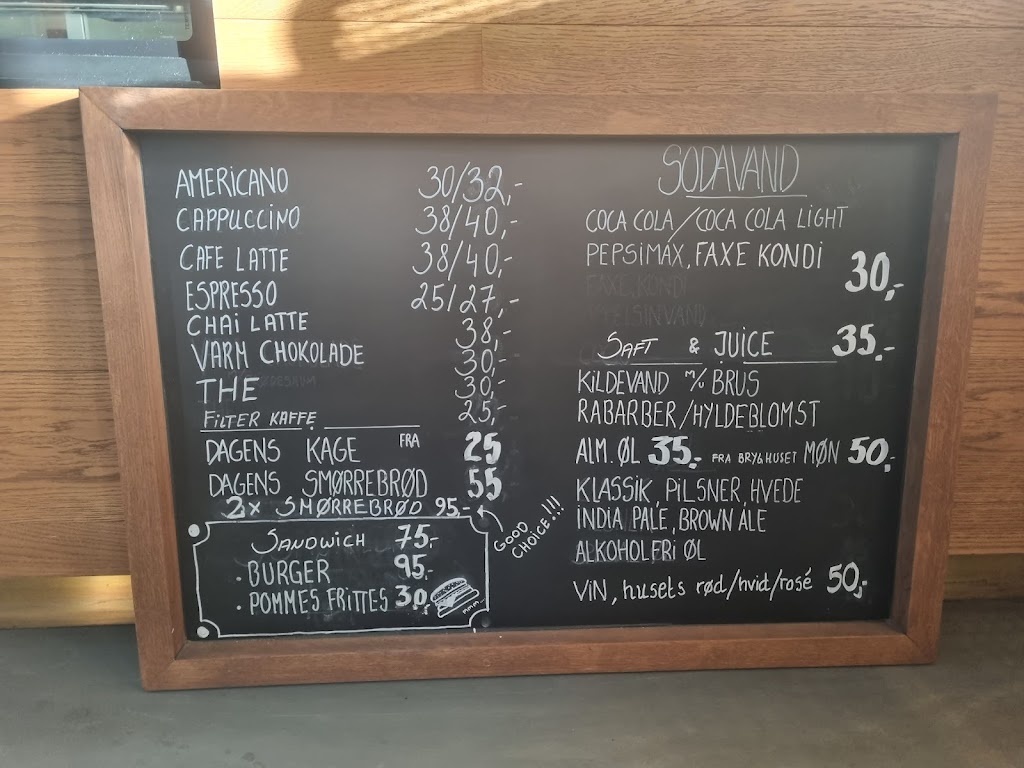 AMERICANO 30/32,-
CAPPUCCINO 38/40,-
CAFE LATTE 38/40,-
ESPRESSO 25/27,-
CHAI LATTE 38,-
VARM CHOKOLADE 30,-
THE 30,-
FILTER KAFFE 25,-
DAGENS KAGE FRA 25
DAGENS SMØRREBRØD 55
2x SMØRREBRØD 95,-
GOOD
CHOICE!!!
SANDWICH 75,-
• BURGER 95,-
• POMMES FRITTES 30,-
MMM
SODAVAND
COCA COLA/COCA COLA LIGHT
PEPSIMAX, FAXE KONDI
30,-
FAXE KONDI
SAFT & JUICE 35,-
KILDEVAND M/U BRUS
RABARBER/HYLDEBLOMST
ALM. ØL 35,- FRA BRYGHUSET MØN 50,-
KLASSIK, PILSNER, HVEDE
INDIA PALE, BROWN ALE
ALKOHOLFRI ØL
VIN, husets rød/hvid/rosé 50,-